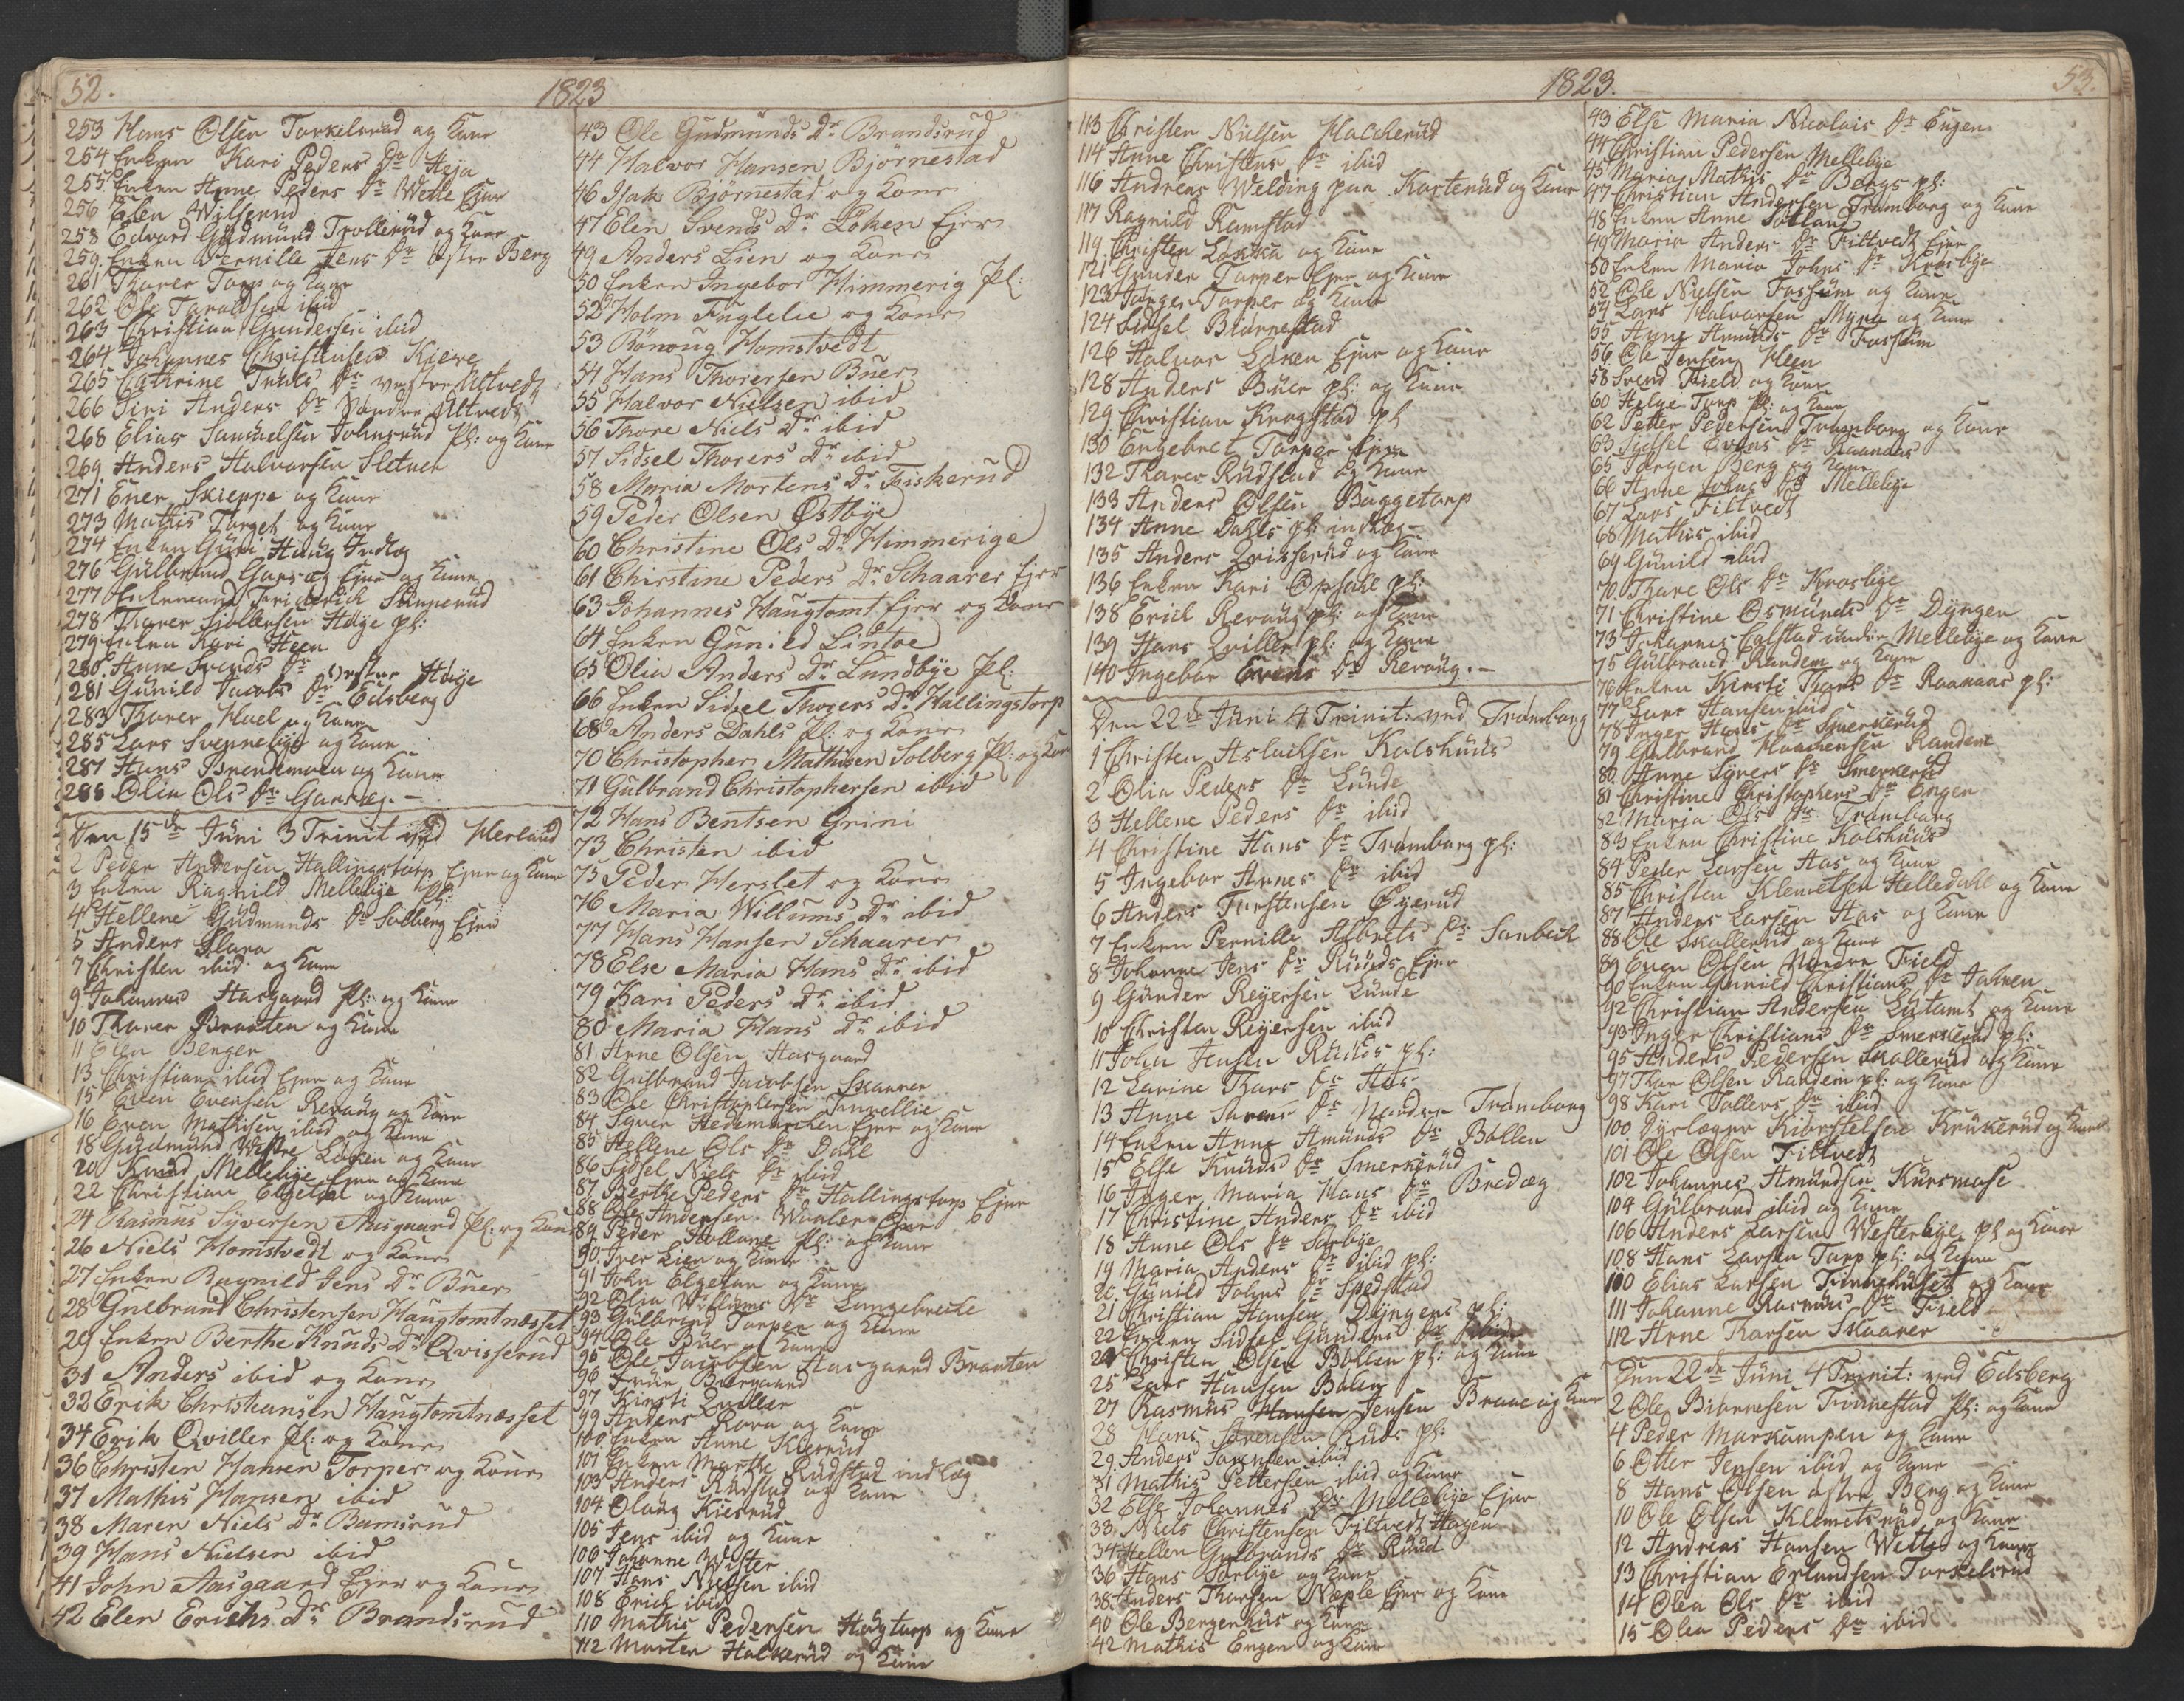 52.
1823
253 Hans Olsen Torkelsrud og Kone
254 Enken Kari Peders Dr Heja
255 Enken Anne Peders Dr Wette Ejer
256 Elen Wilserud
258 Edvard Gudmund Trollerud og Kone
259 Enken Pernille Jens Dr østre Berg
261 Thorer Torp og Kone
262 Ole Taraldsen ibid
263 Christian Gundersen ibid
264 Johannes Christensen Kjerre
265 Cathrine Dr vestre Ultvedt
266 Siri Anders Dr Nordre Ultvedt
268 Elias Samuelsen Johnsrud Pl: og Kone
269 Anders Halvorsen Sletner
271 Ener Skieppe og Kone
273 Mathis Torget og Kone
274 Enken Guri Haug Indlæg
276 Gulbrand Garseg Ejer og Kone
277 Friderich Sünnerud
278 Thorer Høje pl:
279 Enken Kari Heen
280 Anne Svends Dr vestre Høje
281 Gunild Jacobs Dr Eidsberg
283 Thorer Huel og Kone
285 Lars Svennebye og Kone
287 Hans Brendemoen og Kone
288 Olia Ols Dr Garseg. -
Den 15de Juni 3 Trinit ved Herland
2 Peder Andersen Hallingstorp Ejer og Kone
3 Enken Ragnild Mellebye Pl:
4 Hellene Gudmunds Dr Solberg Ejer
5 Anders Slara
7 Christen ibid og Kone
9 Johannes Aasgaard Pl: og Kone
10 Thorer Braaten og Kone
11 Elen Benger
13 Christian ibid Ejer og Kone
15 Even Evensen Revaug og Kone
16 Even Mathisen ibid og Kone
18 Gudmund Westre Løken og Kone
20 Knud Mellebye Ejer og Kone
22 Christian Elgetun og Kone
24 Rasmus Syversen Aasgaard Pl: og Kone
26 Niels Homstvedt og Kone
27 Enken Ragnild Jens Dr Buer
28 Gulbrand Christensen Haugtomtnæsset
29 Enken Berthe Knuds Dr Qvisserud
31 Anders ibid og Kone
32 Erik Christiansen Haugtomtnæsset
34 Erik Qviller Pl: og Kone
36 Christen Hansen Torper og Kone
37 Mathis Hansen ibid
38 Maren Niels Dr Bamsrud
39 Hans Nielsen ibid
41 John Aasgaard Ejer og Kone
42 Elen Erichs Dr Brandsrud
43 Ole Gudmunds Dr Brandsrud
44 Halvor Hansen Bjørnestad
46 Isak Bjørnestad og Kone
47 Elen Svends Dr Løken Ejer
49 Anders Lien og Kone
50 Enken Ingebor Himmerig Pl:
52 Holm Fuglelie og Kone
53 Rønnoug Homstvedt
54 Hans Thorersen Buer
55 Halvor Nielsen ibid
56 Thore Niels Dr ibid
57 Sidsel Thorers Dr ibid
58 Maria Mortens Dr Fiskerud
59 Peder Olsen Østbye
60 Christine Ols Dr Himmerige
61 Chirstine Peders Dr Schaarer Ejer
63 Johannes Haugtomt Ejer og Kone
64 Enken Gunild Lintoe
65 Olia Anders Dr Lundbye Pl:
66 Enken Sidsel Thorers Dr Hallingstorp
68 Anders Dahls Pl: og Kone
70 Christopher Mathisen Solberg Pl: og Kone
71 Gulbrand Christophersen ibid
72 Hans Bentsen Grini
73 Christen ibid
75 Peder Herslet og Kone
76 Maria Willums Dr ibid
77 Hans Hansen Schaarer
78 Else Maria Hans Dr ibid
79 Kari Peders Dr ibid
80 Maria Hans Dr ibid
81 Arne Olsen Aasgaard
82 Gulbrand Jacobsen Skaarer
83 Ole Christophersen
84 Iver Hedemarchen Ejer og Kone
85 Hellene Ols Dr Dahl
86 Sidsel Niels Dr ibid
87 Berthe Peders Dr Hallingstorp Ejer
88 Ole Andersen Waaler Ejer
89 Peder Pl: og Kone
90 Iver Lien og Kone
91 John Elgetun og Kone
92 Olia Willums Dr Langebrecke
93 Gulbrand Torper og Kone
94 Ole Buer og Kone
95 Ole Jacobsen Aasgaard Braaten
96 Buergaard
97 Kirsti Quiller
99 Anders Rova og Kone
100 Enken Anne Kierrud
101 Enken Marthe Rudstad indlæg
103 Anders Rudstad og Kone
104 Olaug Kierrud
105 Jens ibid og Kone
106 Johanne Wister
107 Hans Nielsen ibid
108 Erich ibid
110 Mathis Pedersen Haugtorp og Kone
112 Morten Halkerud og Kone
1823.
53.
113 Christen Nielsen Halckerud
114 Anne Christens Dr ibid
116 Andreas Welding paa Korterud og Kone
117 Ragnild Ramstad
119 Christen Løkka og Kone
121 Gunder Torper Ejer og Kone
123 Jørgen Torper og Kone
124 Sidsel Biørnestad
126 Halvor Løken Ejer og Kone
128 Anders Buer pl: og Kone
129 Christian Krogstad pl
130 Engebret Torper Ejer
132 Thorer Rudstad og Kone
133 Anders Olsen Buggetorp
134 Anne Dahls pl: indlæg -
135 Anders Qvisserud og Kone
136 Enken Kari Opsahl pl:
138 Erich Revaug pl: og Kone
139 Hans Qviller pl: og Kone
140 Ingebor Evens Dr Revaug. -
Den 22de Juni 4 Trinit: ved Trømborg
1 Christen Aslachsen Kolshuus
2 Olia Peders Dr Lunde
3 Hellene Peders Dr ibid
4 Christine Hans Dr Trømborg pl:
5 Ingebor Arnes Dr ibid
6 Anders Torstensen Øyerud
7 Enken Pernille Albrets Dr Sanbech
8 Johanne Jens Dr Ruuds Ejer
9 Gunder Reyersen Lunde
10 Christen Reyersen ibid
11 John Jensen Ruuds pl:
12 Lavine Thors Dr Aas
13 Anne Dr Nordre Trømborg
14 Enken Anne Amunds Dr Bøllen
15 Else Knuds Dr Smerkerud
16 Inger Maria Hans Dr Bredæg
17 Christine Anders Dr ibid
18 Anne Ols Dr Sørbye
19 Maria Anders Dr ibid pl:
20 Gunild Johns Dr Spedstad
21 Christian Hansen Dyngens pl:
22 Enken Sidsel Gunders Dr ibid
24 Christen Olsen Bøllen pl: og Kone
25 Lars Hansen
27 Rasmus Hansen Jensen Braae og Kone
28 Hans Sørensen Ruds pl:
29 Anders Sørensen ibid
31 Mathis Pettersen ibid og Kone
32 Else Johannes Dr Mellebye Ejer
33 Niels Christensen Filtvedt Hagen
34 Hellen Gulbrands Dr Ruud
36 Hans Sørbye og Kone
38 Anders Thorsen Næple Ejer og Kone
40 Ole Bergenhus og Kone
42 Mathis Engen og Kone
43 Else Maria Nicolais Dr Engen
44 Christian Pedersen Mellebye
45 Maria Mathis Dr Bergs pl:
47 Christian Andersen Trømborg og Kone
48 Enken Anne Sotland
49 Maria Anders Dr Filtvedt Ejer
50 Enken Maria Johns Dr Krosbye
52 Ole Nielsen Fossum og Kone
54 Lars Halvorsen Myra og Kone
55 Anne Amunds Dr Fossum
56 Ole Jensen Heen
58 Svend Field og Kone
60 Helge Torp Pl: og Kone
62 Petter Pedersen Trømborg og Kone
63 Sidsel Evens Dr Raanaas
65 Jørgen Berg og Kone
66 Anne Johns Dr Mellebye
67 Lars Filtvedt
68 Mathis ibid
69 Gunild ibid
70 Thore Ols Dr Krosbye
71 Christine Osmunds Dr Dyngen
73 Johannes Calstad under Mellebye og Kone
75 Gulbrand Randem og Kone
76 Enken Kirsti Thors Dr Raanaas pl:
77 Lars Hansen ibid
78 Inger Hans Dr Smerkerud
79 Gulbrand Haachensen Randem
80 Anne Syvers Dr Smerkerud
81 Christine Christophers Dr Engen
82 Maria Ols Dr Trømborg
83 Enken Christine Kolshuus
84 Peder Larsen Aas og Kone
85 Christen Klemetsen Helledahl og Kone
87 Anders Larsen Aas og Kone
88 Ole Skallerud og Kone
89 Even Olsen Nordre Field
90 Enken Gunild Christians Dr Jahren
92 Christian Andersen Lutomt og Kone
93 Inger Christians Dr Smerkerud pl:
95 Anders Pedersen Skallerud og Kone
97 Thor Olsen Randem pl: og Kone
98 Kari Tollevs Dr ibid
100 Dyrlæger Kiørstelsen Krukerud og Kone
101 Ole Olsen Filtvedt
102 Johannes Amundsen Kursmose
104 Gulbrand ibid og Kone
106 Anders Larsen Westerbye pl og Kone
108 Hans Larsen Torp pl: og Kone
110 Elias Larsen og Kone
111 Johanne Rasmus Dr Field
112 Arne Thorsen Skaarer
Den 22de Juni 4 Trinit: ved Edsberg
2 Ole Biørnesen Finnestad Pl: og Kone
4 Peder Morskampen og Kone
6 Otter Jensen ibid og Kone
8 Hans Olsen østre Berg og Kone
10 Ole Olsen Klemetsrud og Kone
12 Andreas Hansen Wette og Kone
13 Christian Erlandsen Torkelsrud
14 Olea Ols Dr ibid
15 Olea Peders Dr ibid